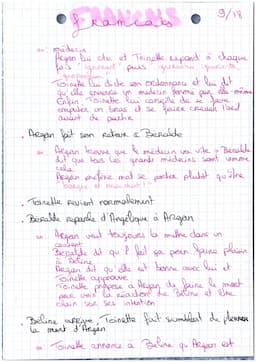 9/18
Français
médecin
Argan lui cite et Toinette répond à chaque
fois puis
Toinette lui dicte son ordonnance et lui dit
qu'elle enverra un médecin formé par elle-même
Enfin, Toinette lui conseille de se faire
amputer un bras et se faire crever l'œil
avant de partir
. Argan fait son retour à Béralde
Argan trouve que le médecin va vite, Béralde
dit que tous les grands médecins sont comme
cela
Argan préfère mal se porter plutôt qu'être
"borgne et manchot!"
. Toinette revient normalement
. Béralde reparle d'Angélique à Argan
Argan veut toujours la mettre dans un
couvent
Béralde dit qu'il fait ça pour faire plaisir
à Béline
Argan dit qu'elle est bonne avec lui et
Toinette approuve
Toinette propose à Argan de faire le mort
pour voir la réaction de Béline et être
clair sur ses intention
. Béline arrive, Toinette fait semblant de pleurer
la mort d'Argan
Toinette annonce à Béline qu'Argan est